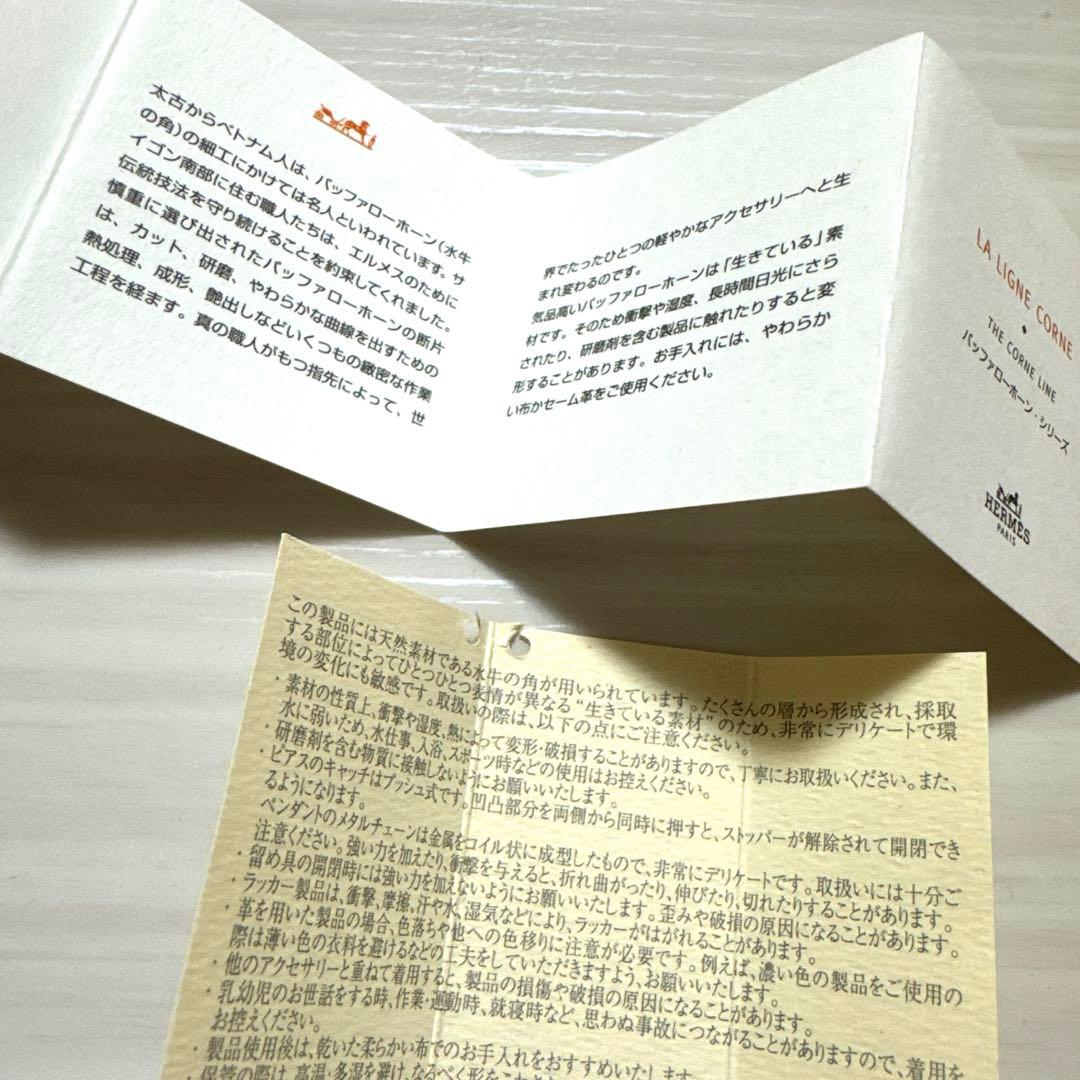 太古からベトナム人は、バッファローホーン(水牛
の角)の細工にかけては名人といわれています。サ
イゴン南部に住む職人たちは、エルメスのために
伝統技法を守り続けることを約束してくれました。
慎重に選び出されたバッファローホーンの断片
は、カット、研磨、やわらかな曲線を出すための
熱処理、成形、艶出しなどいくつもの緻密な作業
工程を経ます。真の職人がもつ指先によって、世
界でたったひとつの軽やかなアクセサリーへと生
まれ変わるのです。
気品高いバッファローホーンは「生きている」素
材です。そのため衝撃や湿度、長時間日光にさら
されたり、研磨剤を含む製品に触れたりすると変
形することがあります。お手入れには、やわらか
い布かセーム革をご使用ください。
LA LIGNE CORNE
THE CORNE LINE
バッファローホーン・シリーズ
HERMES
PARIS
この製品には天然素材である水牛の角が用いられています。たくさんの層から形成され、採取
する部位によってひとつひとつ表情が異なる“生きている素材”のため、非常にデリケートで環
境の変化にも敏感です。取扱いの際は、以下の点にご注意ください。
・素材の性質上、衝撃や湿度、熱によって変形・破損することがありますので、丁寧にお取扱いください。また、
水に弱いため、水仕事、入浴、スポーツ時などの使用はお控えください。
・研磨剤を含む物質に接触しないようにお願いいたします。
・ピアスのキャッチはプッシュ式です。凹凸部分を両側から同時に押すと、ストッパーが解除されて開閉でき
るようになります。
ペンダントのメタルチェーンは金属をコイル状に成型したもので、非常にデリケートです。取扱いには十分ご
注意ください。強い力を加えたり、衝撃を与えると、折れ曲がったり、伸びたり、切れたりすることがあります。
・留め具の開閉時には強い力を加えないようにお願いいたします。歪みや破損の原因になることがあります。
・ラッカー製品は、衝撃、摩擦、汗や水、湿気などにより、ラッカーがはがれることがあります。
・革を用いた製品の場合、色落ちや他への色移りに注意が必要です。例えば、濃い色の製品をご使用の
際は薄い色の衣料を避けるなどの工夫をしていただきますよう、お願いいたします。
・他のアクセサリーと重ねて着用すると、製品の損傷や破損の原因になることがあります。
・乳幼児のお世話をする時、作業・運動時、就寝時など、思わぬ事故につながることがありますので、着用を
お控えください。
・製品使用後は、乾いた柔らかい布でのお手入れをおすすめいたします
・保管の際は、高温・多湿を避け、なるべく形を